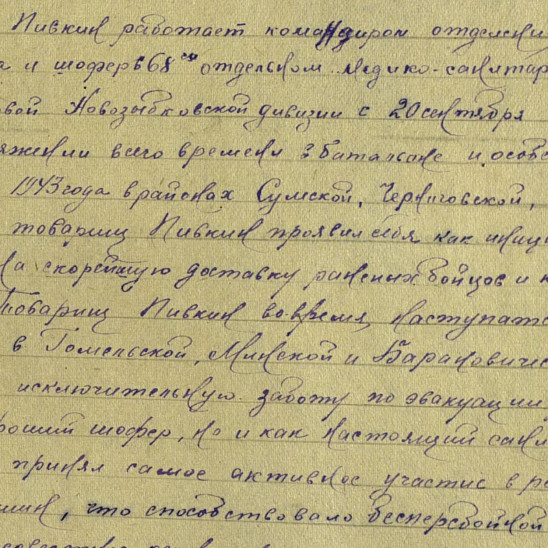 Пивкин работает командиром отделени
а и шофер в 68ом отдельном медико-санитар
вой Новозыбковской дивизии с 20 сентября
яжении всего времени в баталионе и особе
1943 года в районах Сумской, Черниговской,
товарищ Пивкин проявил себя как иници
на скорейшую доставку раненых бойцов и к
Товарищ Пивкин во-время, наступате
в Гомельской, Минской и Барановичес
исключительную заботу по эвакуации
роший шофер, но и как настоящий сани
принял самое активное участие в ре
шин, что способствовало бесперебойной